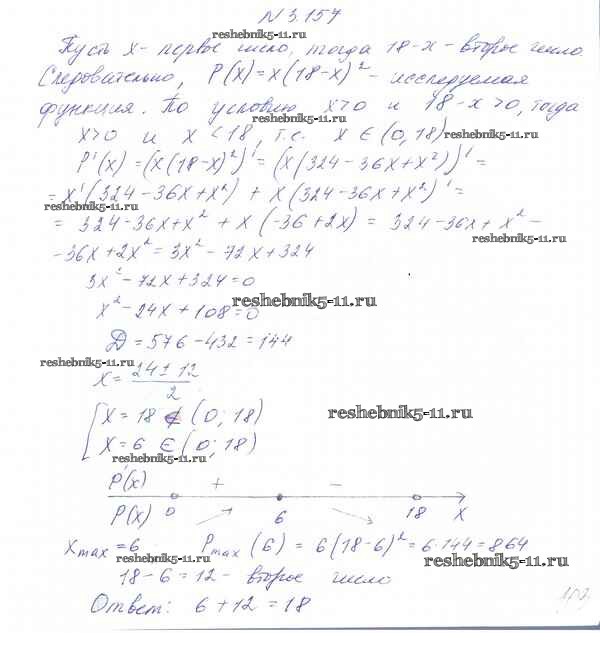 № 3.157
Пусть x - первое число, тогда 18-x - второе число.
Следовательно, P(x)=x(18-x)² - исследуемая
функция. По условию x>0 и 18-x>0, тогда
reshebnik5-11.ru
reshebnik5-11.ru
x>0 и x<18, т.е. x ∈ (0, 18)
reshebnik5-11.ru
P'(x)=(x(18-x)²)'=(x(324-36x+x²))'=
=x'(324-36x+x²)+x(324-36x+x²)'=
reshebnik5-11.ru
=324-36x+x²+x(-36+2x)=324-36x+x²-
reshebnik5-11.ru
-36x+2x²=3x²-72x+324
3x²-72x+324=0
x²-24x+108=0
reshebnik5-11.ru
Д=576-432=144
reshebnik5-11.ru
x=24±12/2
[x=18 ∉ (0; 18)
x=6 ∈ (0; 18)
reshebnik5-11.ru
reshebnik5-11.ru
P'(x) + -
P(x) 0 6 18 x
xmax=6 Pmax(6)=6(18-6)²=6·144=864
reshebnik5-11.ru
reshebnik5-11.ru
18-6=12 - второе число
Ответ: 6+12=18